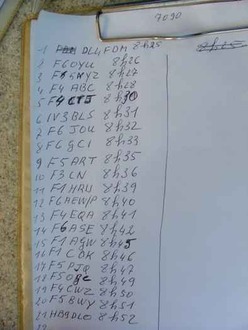 7090
1 DL4FDM 8h25
2 F6OYU 8h26
3 8h27
4 F4ABC 8h28
5 F4CTJ 8h30
6 IV3BLS 8h31
7 F6JOU 8h32
8 F6GCI 8h33
9 F5ART 8h35
10 F3LN 8h36
11 F1HRU 8h39
12 F6AEW/P 8h40
13 F4EQA 8h41
14 F6ASE 8h42
15 F1AGW 8h45
16 8h46
17 F5PJQ 8h47
18 F5OGC 8h49
19 F4CWZ 8h50
20 F5BWY 8h51
21 HB9DLO 8h52